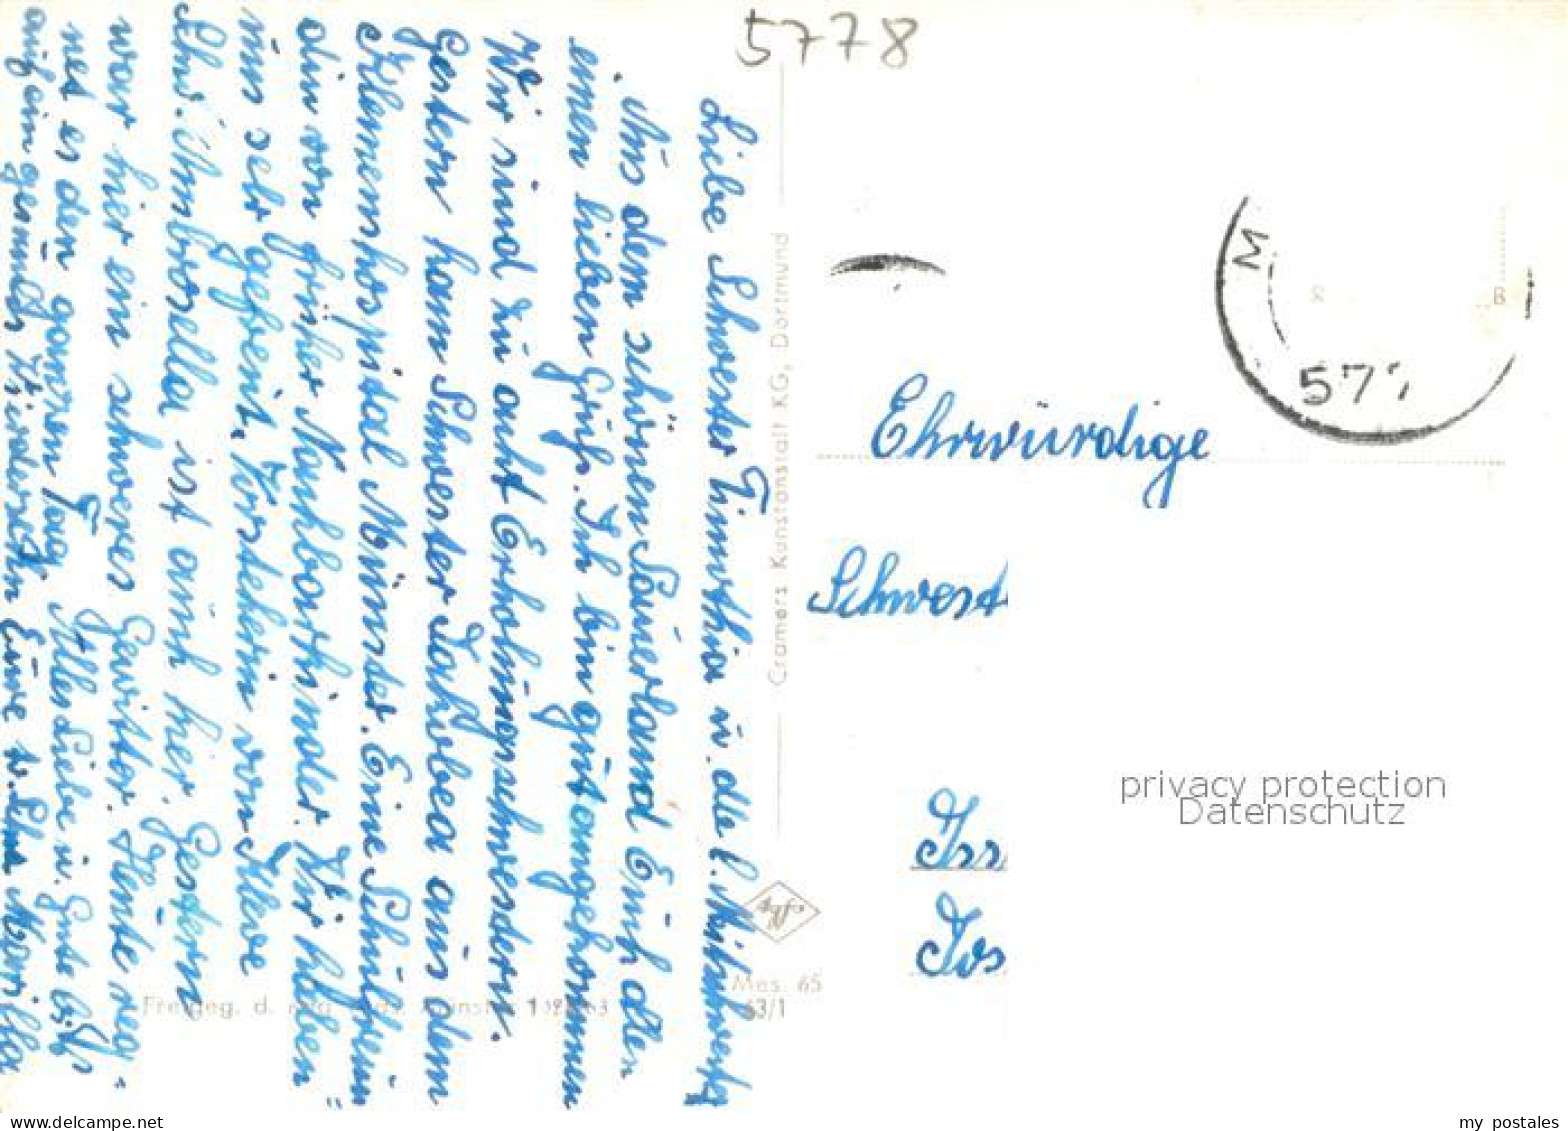 5778
Liebe Schwester Timothia u. alle l. Mitschwestern
Aus dem schönen Sauerland Euch allen
einen lieben Gruß. Ich bin gut angekommen
Wir sind zu acht Erholungsschwestern.
Gestern kam Schwester aus dem
Klemenshospital Münster. Eine Schülerin
von früher Nachbarkinder. Wir haben
uns sehr gefreut. Vorsteherin von Kleve
Schw. Ambrosella ist auch hier. Gestern
war hier ein schweres Gewitter. Heute reg-
net es den ganzen Tag. Alles Liebe u. Gute bis
auf ein gesundes Wiedersehn Eure
Cramers Kunstanstalt KG, Dortmund
Mes. 65
63/1
Freigeg. d. Münster
M
577
B
Ehrwürdige
Schwest
Iss
privacy protection
Datenschutz
www.ansichtskartenversand.com
my_postales